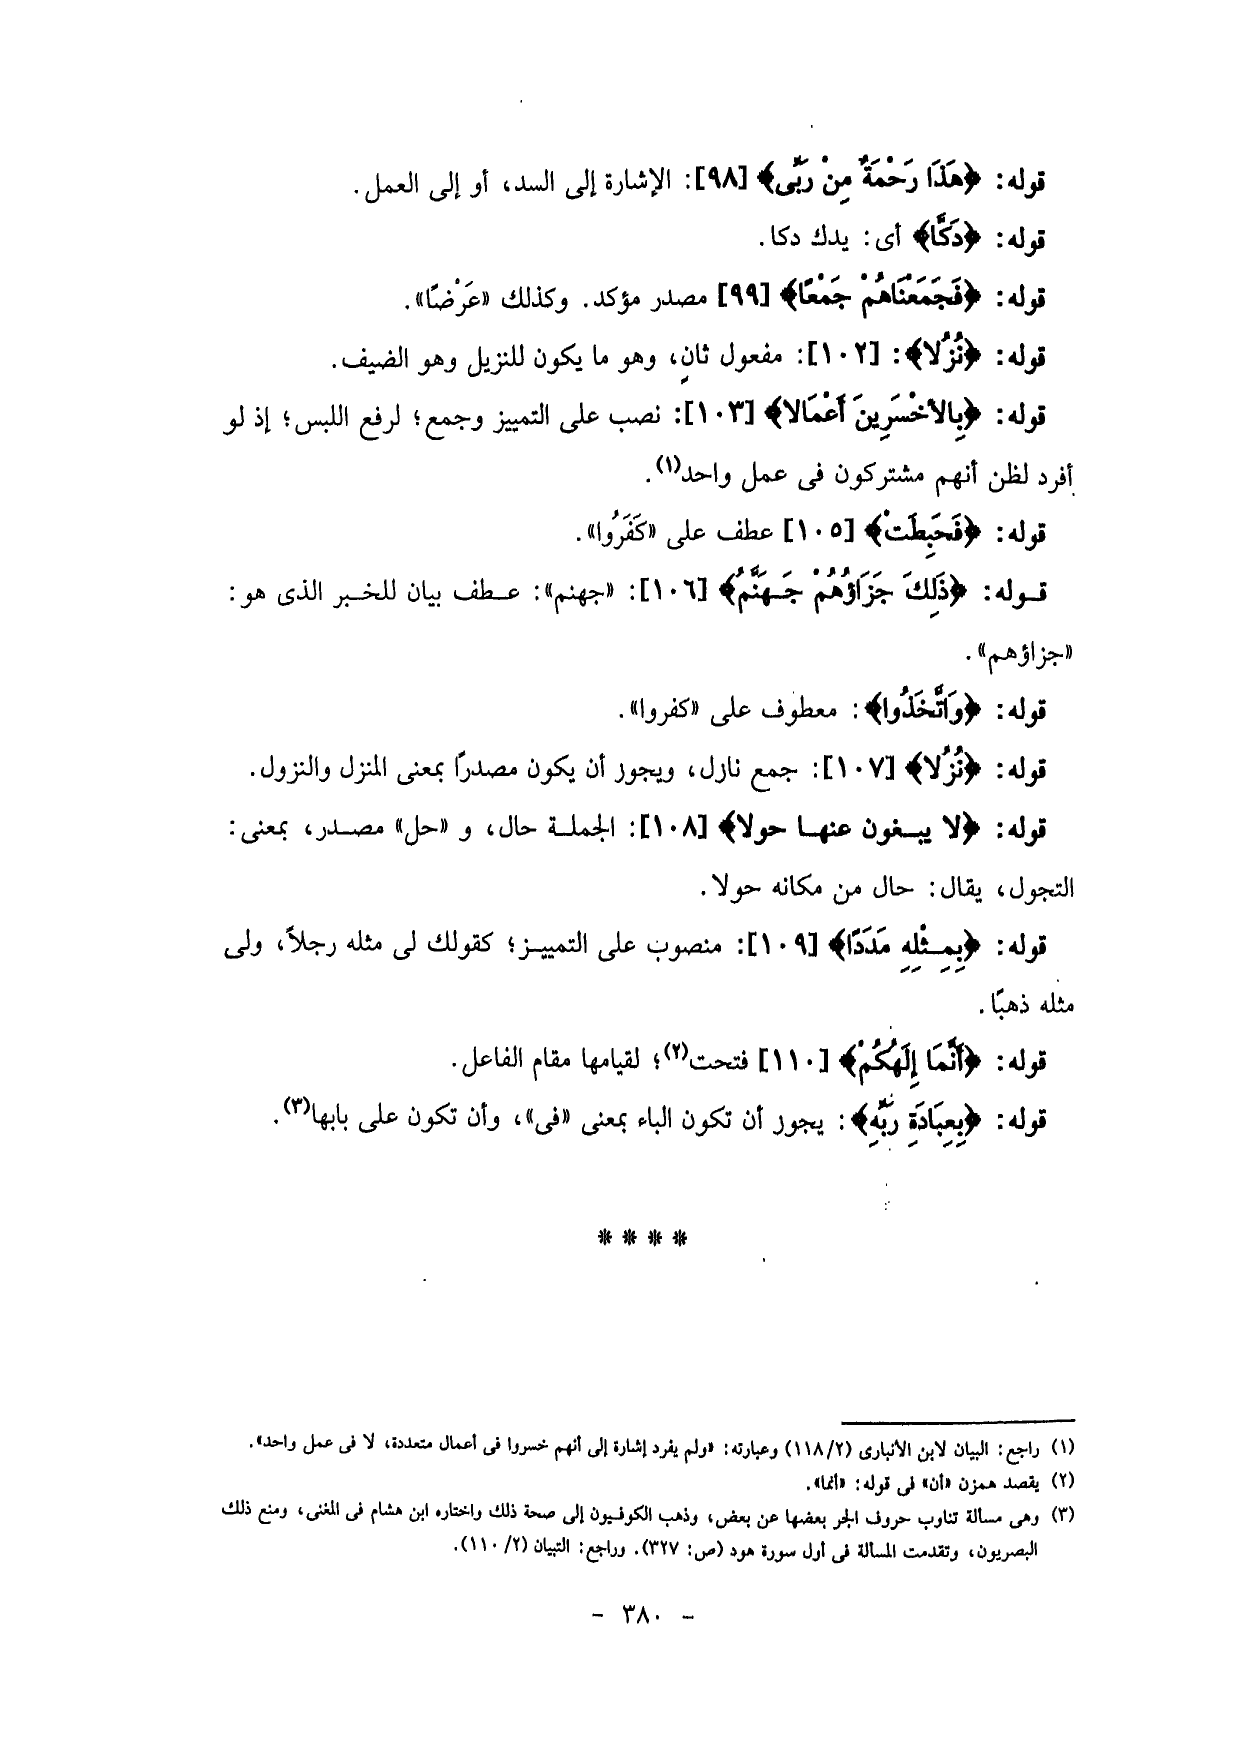 قوله: ﴿هَذَا رَحْمَةٌ مِنْ رَبِّى﴾ [٩٨]: الإشارة إلى السد، أو إلى العمل.
قوله: ﴿دَكًّا﴾ أى: يدك دكا.
قوله: ﴿فَجَمَعْنَاهُمْ جَمْعًا﴾ [٩٩] مصدر مؤكد. وكذلك «عَرْضًا».
قوله: ﴿نُزُلا﴾: [١٠٢]: مفعول ثانٍ، وهو ما يكون للنزيل وهو الضيف.
قوله: ﴿بِالأَخْسَرِينَ أَعْمَالا﴾ [١٠٣]: نصب على التمييز وجمع؛ لرفع اللبس؛ إذ لو
أفرد لظن أنهم مشتركون فى عمل واحد(١).
قوله: ﴿فَحَبِطَتْ﴾ [١٠٥] عطف على «كَفَرُوا».
قـوله: ﴿ذَلِكَ جَزَاؤُهُمْ جَـهَنَّمُ﴾ [١٠٦]: «جهنم»: عـطف بيان للخـبر الذى هو:
«جزاؤهم».
قوله: ﴿وَاتَّخَذُوا﴾: معطوف على «كفروا».
قوله: ﴿نُزُلا﴾ [١٠٧]: جمع نازل، ويجوز أن يكون مصدرًا بمعنى المنزل والنزول.
قوله: ﴿لا يبـغون عنهـا حولا﴾ [١٠٨]: الجملـة حال، و «حل» مصـدر، بمعنى:
التجول، يقال: حال من مكانه حولا.
قوله: ﴿بِمِـثْلِهِ مَدَدًا﴾ [١٠٩]: منصوب على التمييـز؛ كقولك لى مثله رجلاً، ولى
مثله ذهبًا.
قوله: ﴿أَنَّمَا إِلَهُكُمْ﴾ [١١٠] فتحت(٢)؛ لقيامها مقام الفاعل.
قوله: ﴿بِعِبَادَةِ رَبِّهِ﴾: يجوز أن تكون الباء بمعنى «فى»، وأن تكون على بابها(٣).
* * * *
(١) راجع: البيان لابن الأنبارى (١١٨/٢) وعبارته: «ولم يفرد إشارة إلى أنهم خسروا فى أعمال متعددة، لا فى عمل واحد».
(٢) يقصد همزن «أن» فى قوله: «أنما».
(٣) وهى مسألة تناوب حروف الجر بعضها عن بعض، وذهب الكوفيون إلى صحة ذلك واختاره ابن هشام فى المغنى، ومنع ذلك
البصريون، وتقدمت المسألة فى أول سورة هود (ص: ٣٢٧). وراجع: التبيان (١١٠/٢).
- ٣٨٠ -